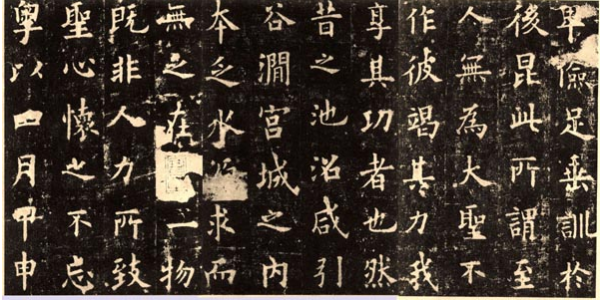 卑儉足垂訓於
後昆此所謂至
人無為大聖不
作彼竭其力我
享其功者也然
昔之池沼咸引
谷澗宮城之內
本乏水源求而
無之在一物
既非人力所致
聖心懷之不忘
粤以四月甲申